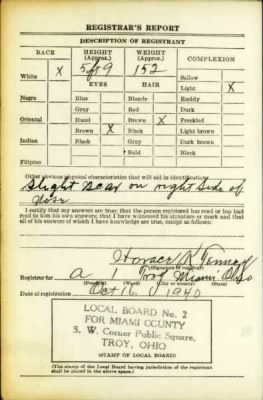 REGISTRAR'S REPORT
DESCRIPTION OF REGISTRANT
RACE HEIGHT (Approx.) WEIGHT (Approx.) COMPLEXION
5 ft 9 152
White X Sallow
EYES HAIR Light X
Negro Blue Blonde Ruddy
Gray Red Dark
Oriental Hazel Brown X Freckled
Brown X Black Light brown
Indian Black Gray Dark brown
Bald Black
Filipino
Other obvious physical characteristics that will aid in identification
Slight Scar on right side of
nose
I certify that my answers are true; that the person registered has read or has had
read to him his own answers; that I have witnessed his signature or mark and that
all of his answers of which I have knowledge are true, except as follows:
Horace
(Signature of registrar)
Registrar for A 1 Troy Miami Ohio
Date of registration Oct 16 1940
LOCAL BOARD No. 2
FOR MIAMI COUNTY
S. W. Corner Public Square,
TROY, OHIO
(STAMP OF LOCAL BOARD)
(The stamp of the Local Board having jurisdiction of the registrant
shall be placed in the above space.)